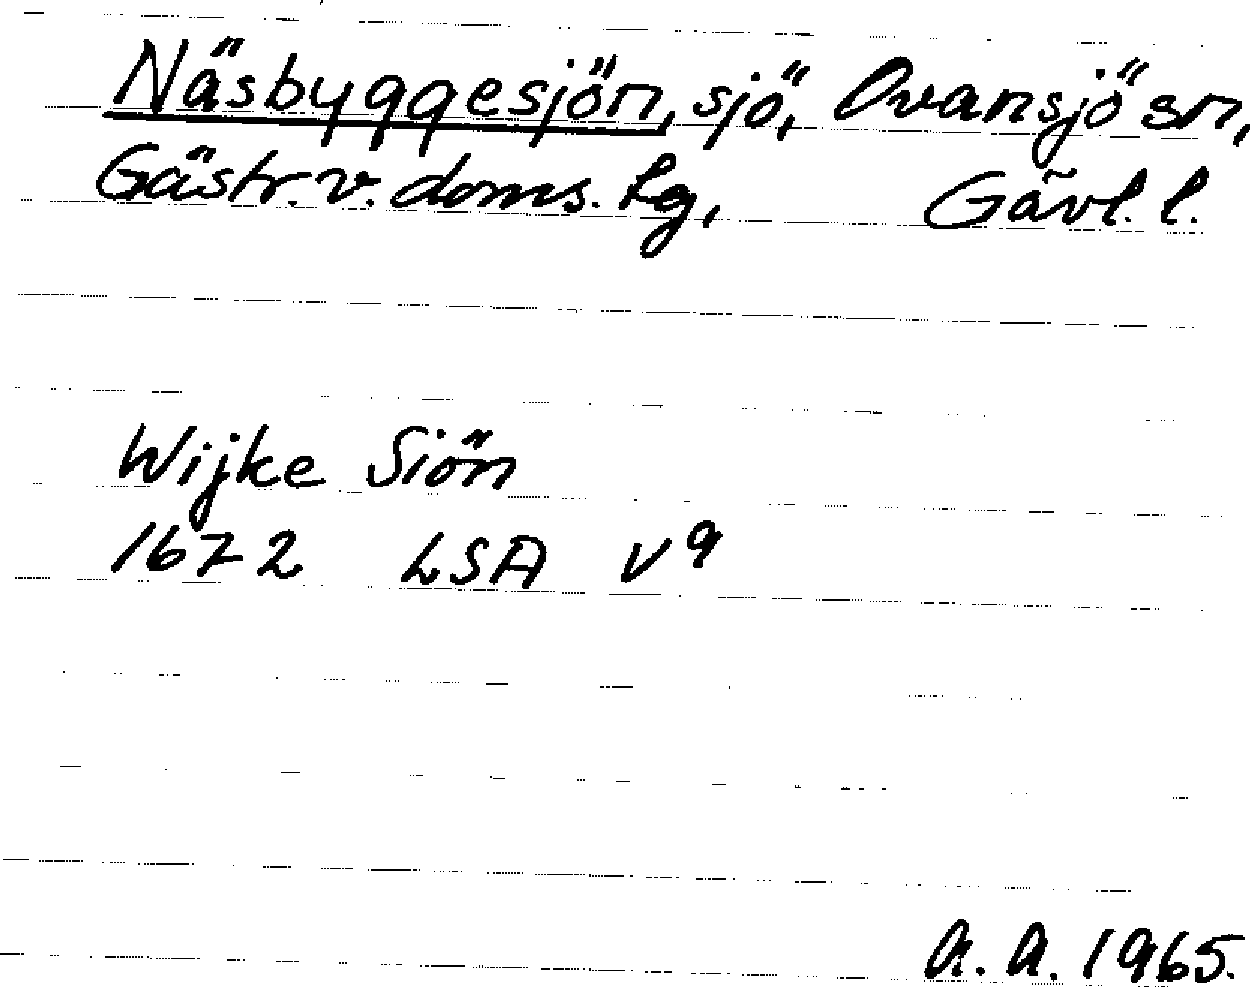 Näsbyggesjön, sjö, Ovansjö sn,
Gästr. v. doms. hg, Gävl. l.
Wijke Siön
1672 LSA V9
A. A. 1965.